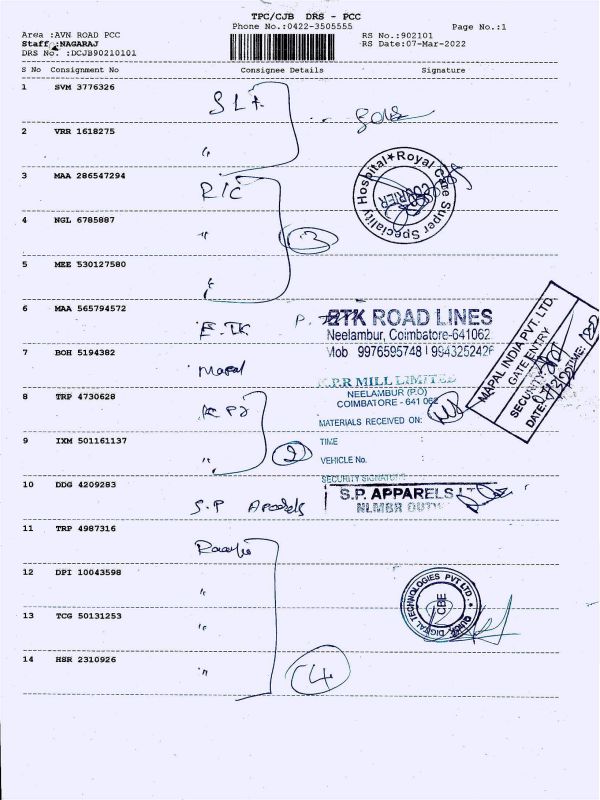 TPC/CJB DRS - PCC
Phone No.:0422-3505555
Page No.:1
Area :AVN ROAD PCC
Staff :NAGARAJ
DRS No. :DCJB90210101
RS No.:902101
RS Date:07-Mar-2022
S No Consignment No Consignee Details Signature
1 SVM 3776326
2 VRR 1618275
3 MAA 286547294
Royal Care Super Speciality Hospital
COURIER
4 NGL 6785887
3
5 MEE 530127580
6 MAA 565794572
BTK ROAD LINES
Neelambur, Coimbatore-641062
Mob 9976595748 | 9943252426
MAPAL INDIA PVT. LTD.
GATE ENTRY
SECURITY:
DATE:
TIME:
7 BOH 5194382 Mapal
8 TRP 4730628 KPR
K.P.R MILL LIMITED
NEELAMBUR (P.O)
COIMBATORE - 641 062
MATERIALS RECEIVED ON:
9 IXM 501161137 " 2
TIME :
VEHICLE No. :
SECURITY SIGNATURE
10 DDG 4209283 S.P Apparels
S.P. APPARELS LTD
NLMBR
11 TRP 4987316
12 DPI 10043598 "
DIGITAL TECHNOLOGIES PVT LTD.
CBE
13 TCG 50131253 "
14 HSR 2310926 " 4